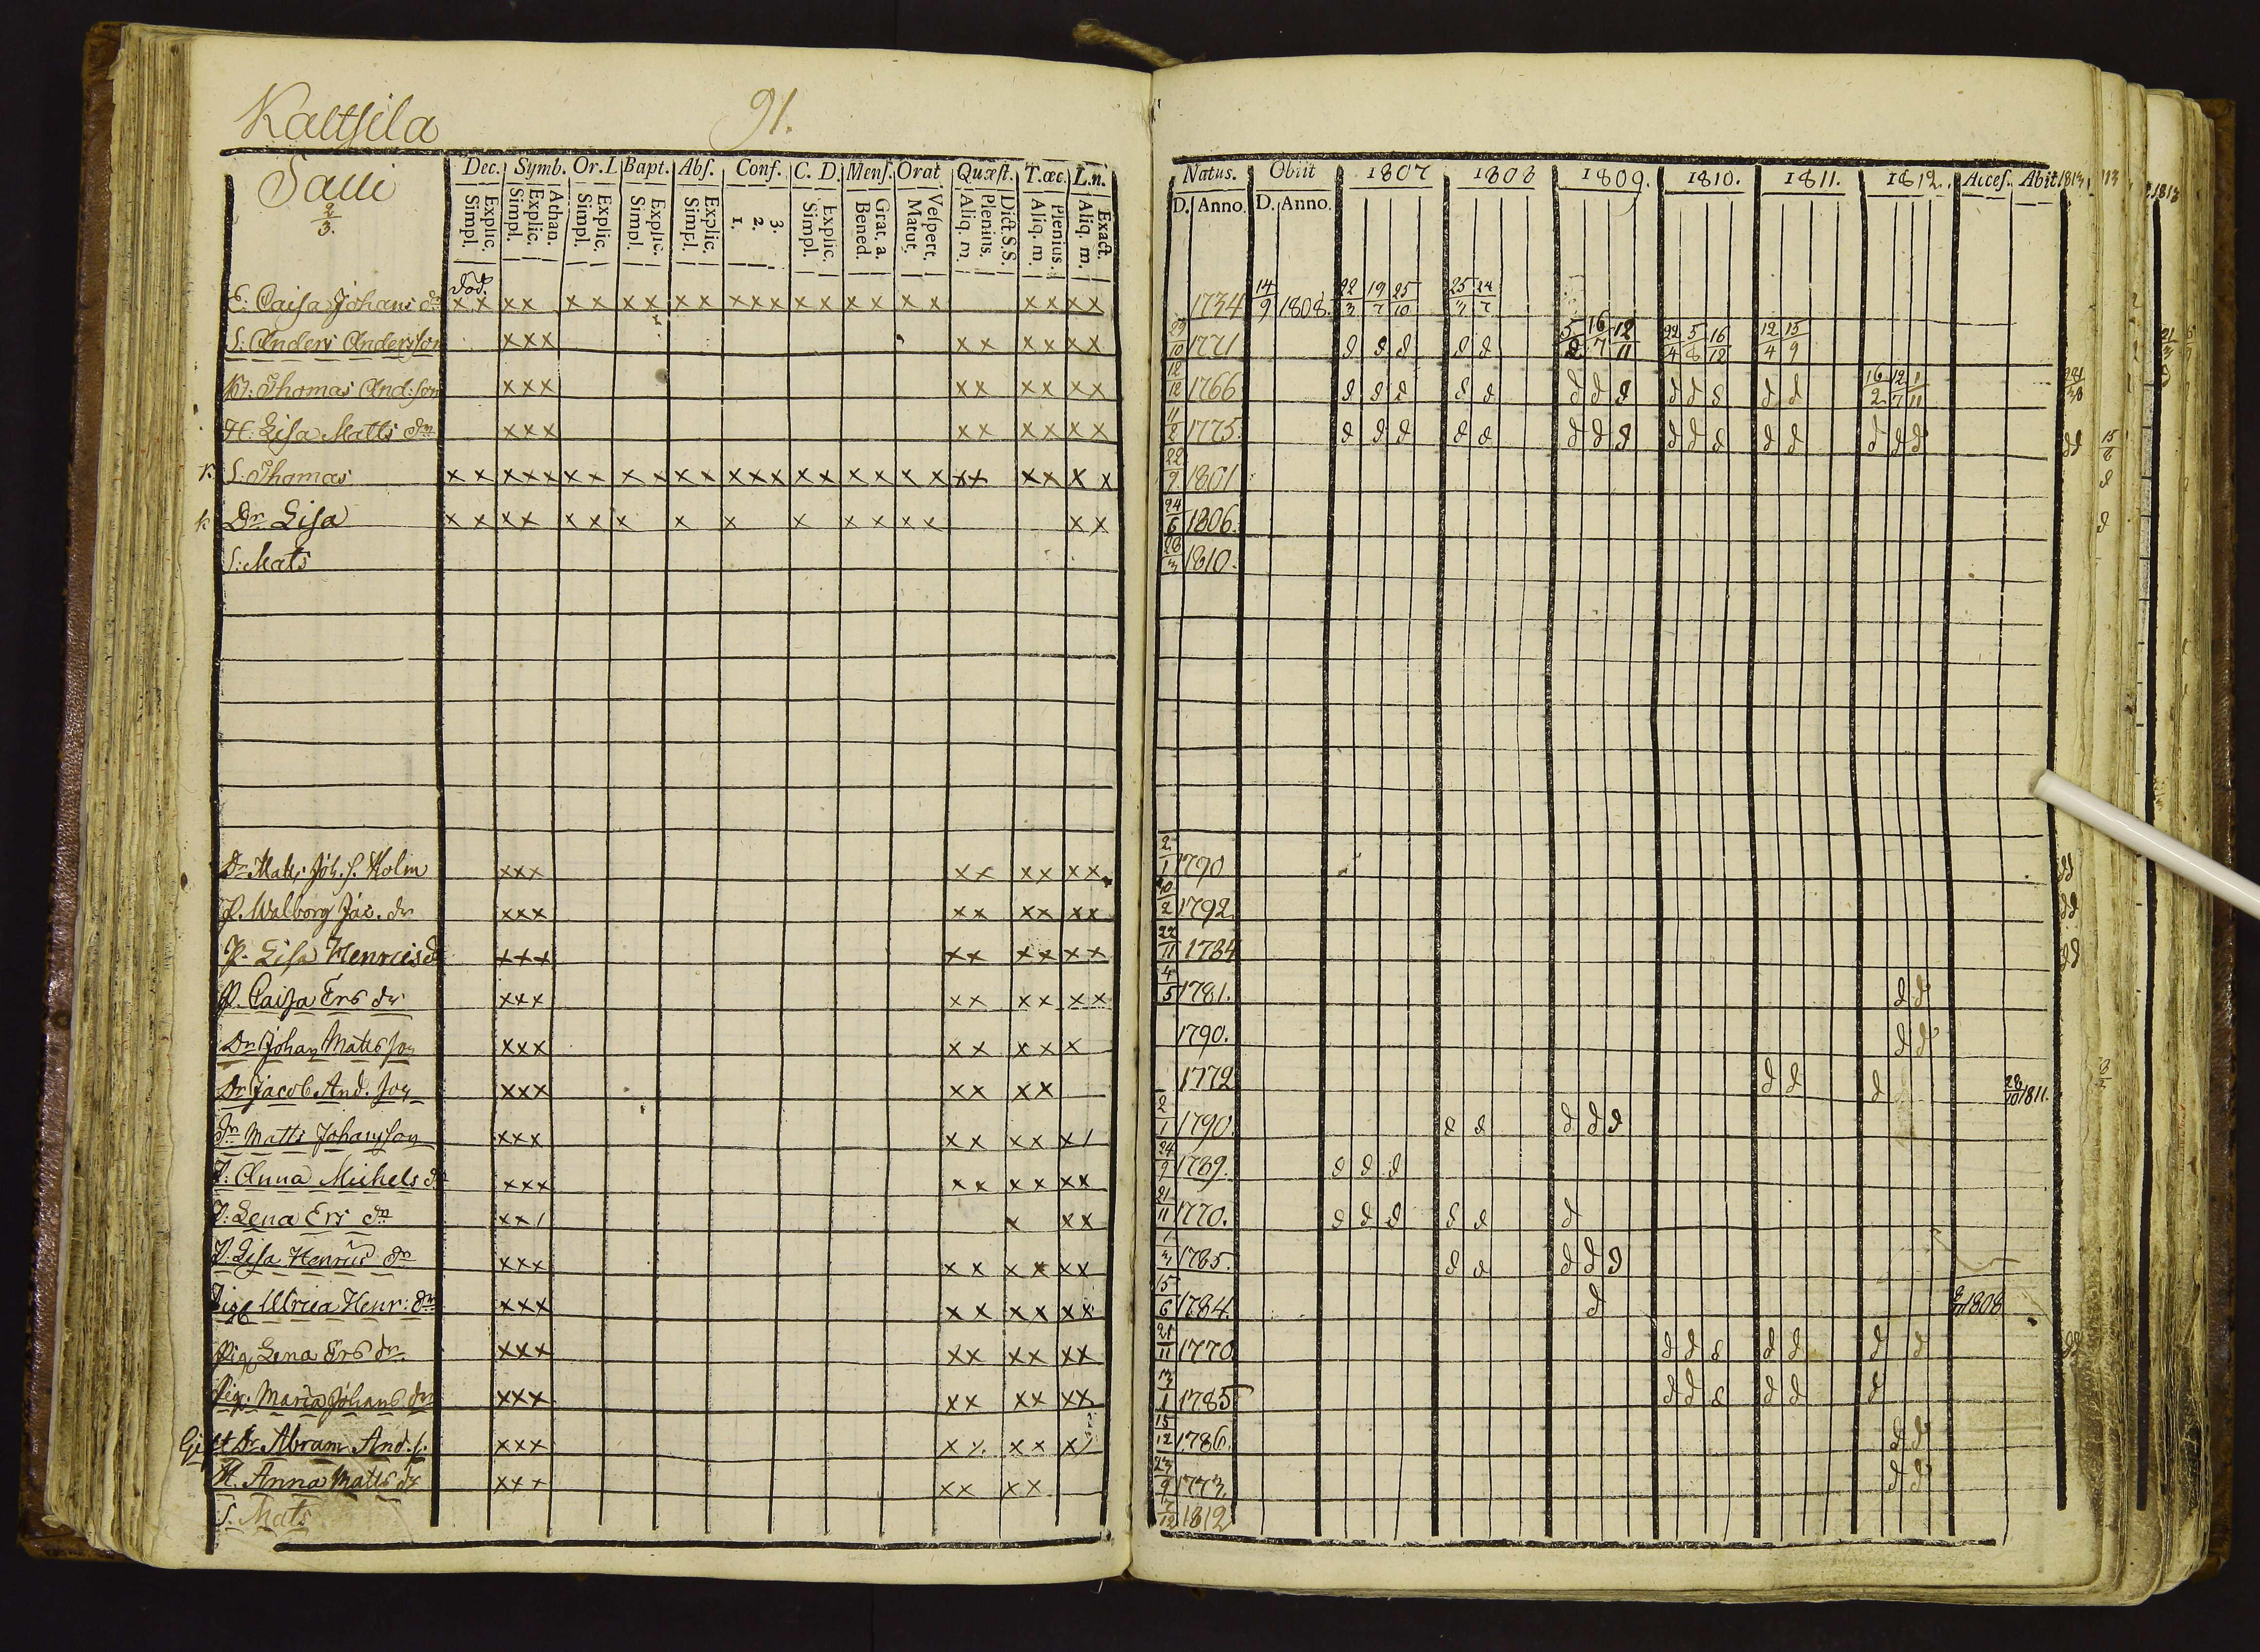 Kaltsila 91.
Dec. Symb. Or. L Bapt. Abſ. Conf. C. D. Menſ. Orat. Quæſt. T. œc. L. n.
Explic. Simpl. Athan. Explic. Simpl. Explic. Simpl. Explic. Simpl. Explic. Simpl. 3. 2. 1. Explic. Simpl. Grat. a. Bened. Veſpert. Matut. Dict. S. S. Plenius. Aliq. m. Plenius. Aliq. m. Exact. Aliq. m.
Natus. Obiit 1807 1808 1809. 1810. 1811. 1812. Acceſ. Abit 1813
D. Anno. D. Anno.
Saui
2/3.
död.
E: Caisa Johans dr x x x x x x x x x x x x x x x x x x x x x x x x 1734 14/9 1808. 22/3 19/7 25/10 25/3 24/7
S: Anders Andersson x x x x x x x x x 29/10 1771 d d d d d 5/2 16/7 12/11 22/4 5/8 16/12 12/4 15/9
Thomas And:son x x x x x x x x x 12/12 1766 d d d d d d d d d d d d d 16/2 12/7 1/11
H: Lisa Matts dr x x x x x x x x x 11/2 1775 d d d d d d d d d d d d d d d d dd
S: Thomas x x x x x x x x x x x x x x x x x x x x x x x x x x 22/9 1801
Dr Lisa x x x x x x x x x x x x x x x x 24/6 1806.
S: Mats 28/3 1810.
Dr Matts Joh. S. Holm x x x x x x x x x 2/1 1790 dd
P. Walborg Jac. dr x x x x x x x x x 20/2 1792. dd
P. Lisa Henricsd x x x x x x x x x 22/11 1784 dd
P. Caisa Ers dr x x x x x x x x x 4/5 1781. d d
Dr Johan Matsson x x x x x x x x 1790. d d
Dr Jacob And. son x x x x x x x 1772 d d d 28/10 1811.
Dr Matts Johansson x x x x x x x x / 2/1 1790. d d d d d
P: Anna Michels dr x x x x x x x x x 24/9 1789. d d d
P: Lena Ers dr x x / x x x 21/11 1770. d d d d d d
P. Lisa Henrics dr x x x x x x x x x 1/3 1785. d d d d d
Pig Ulrica Henr: dr x x x x x x x x x 15/6 1784. d 1808
Pig Lena Ers dr. x x x x x x x x x 21/11 1770 d d d d d d d dd
Pig: Maria Johans dr x x x x x x x x x 13/1 1785 d d d d d d
Gift Dr Abram And. s. x x x x x x x x / 15/12 1786. d d
H. Anna Matts dr x x x x x x x 23/9 1773. d d
S. Mats 7/12 1812